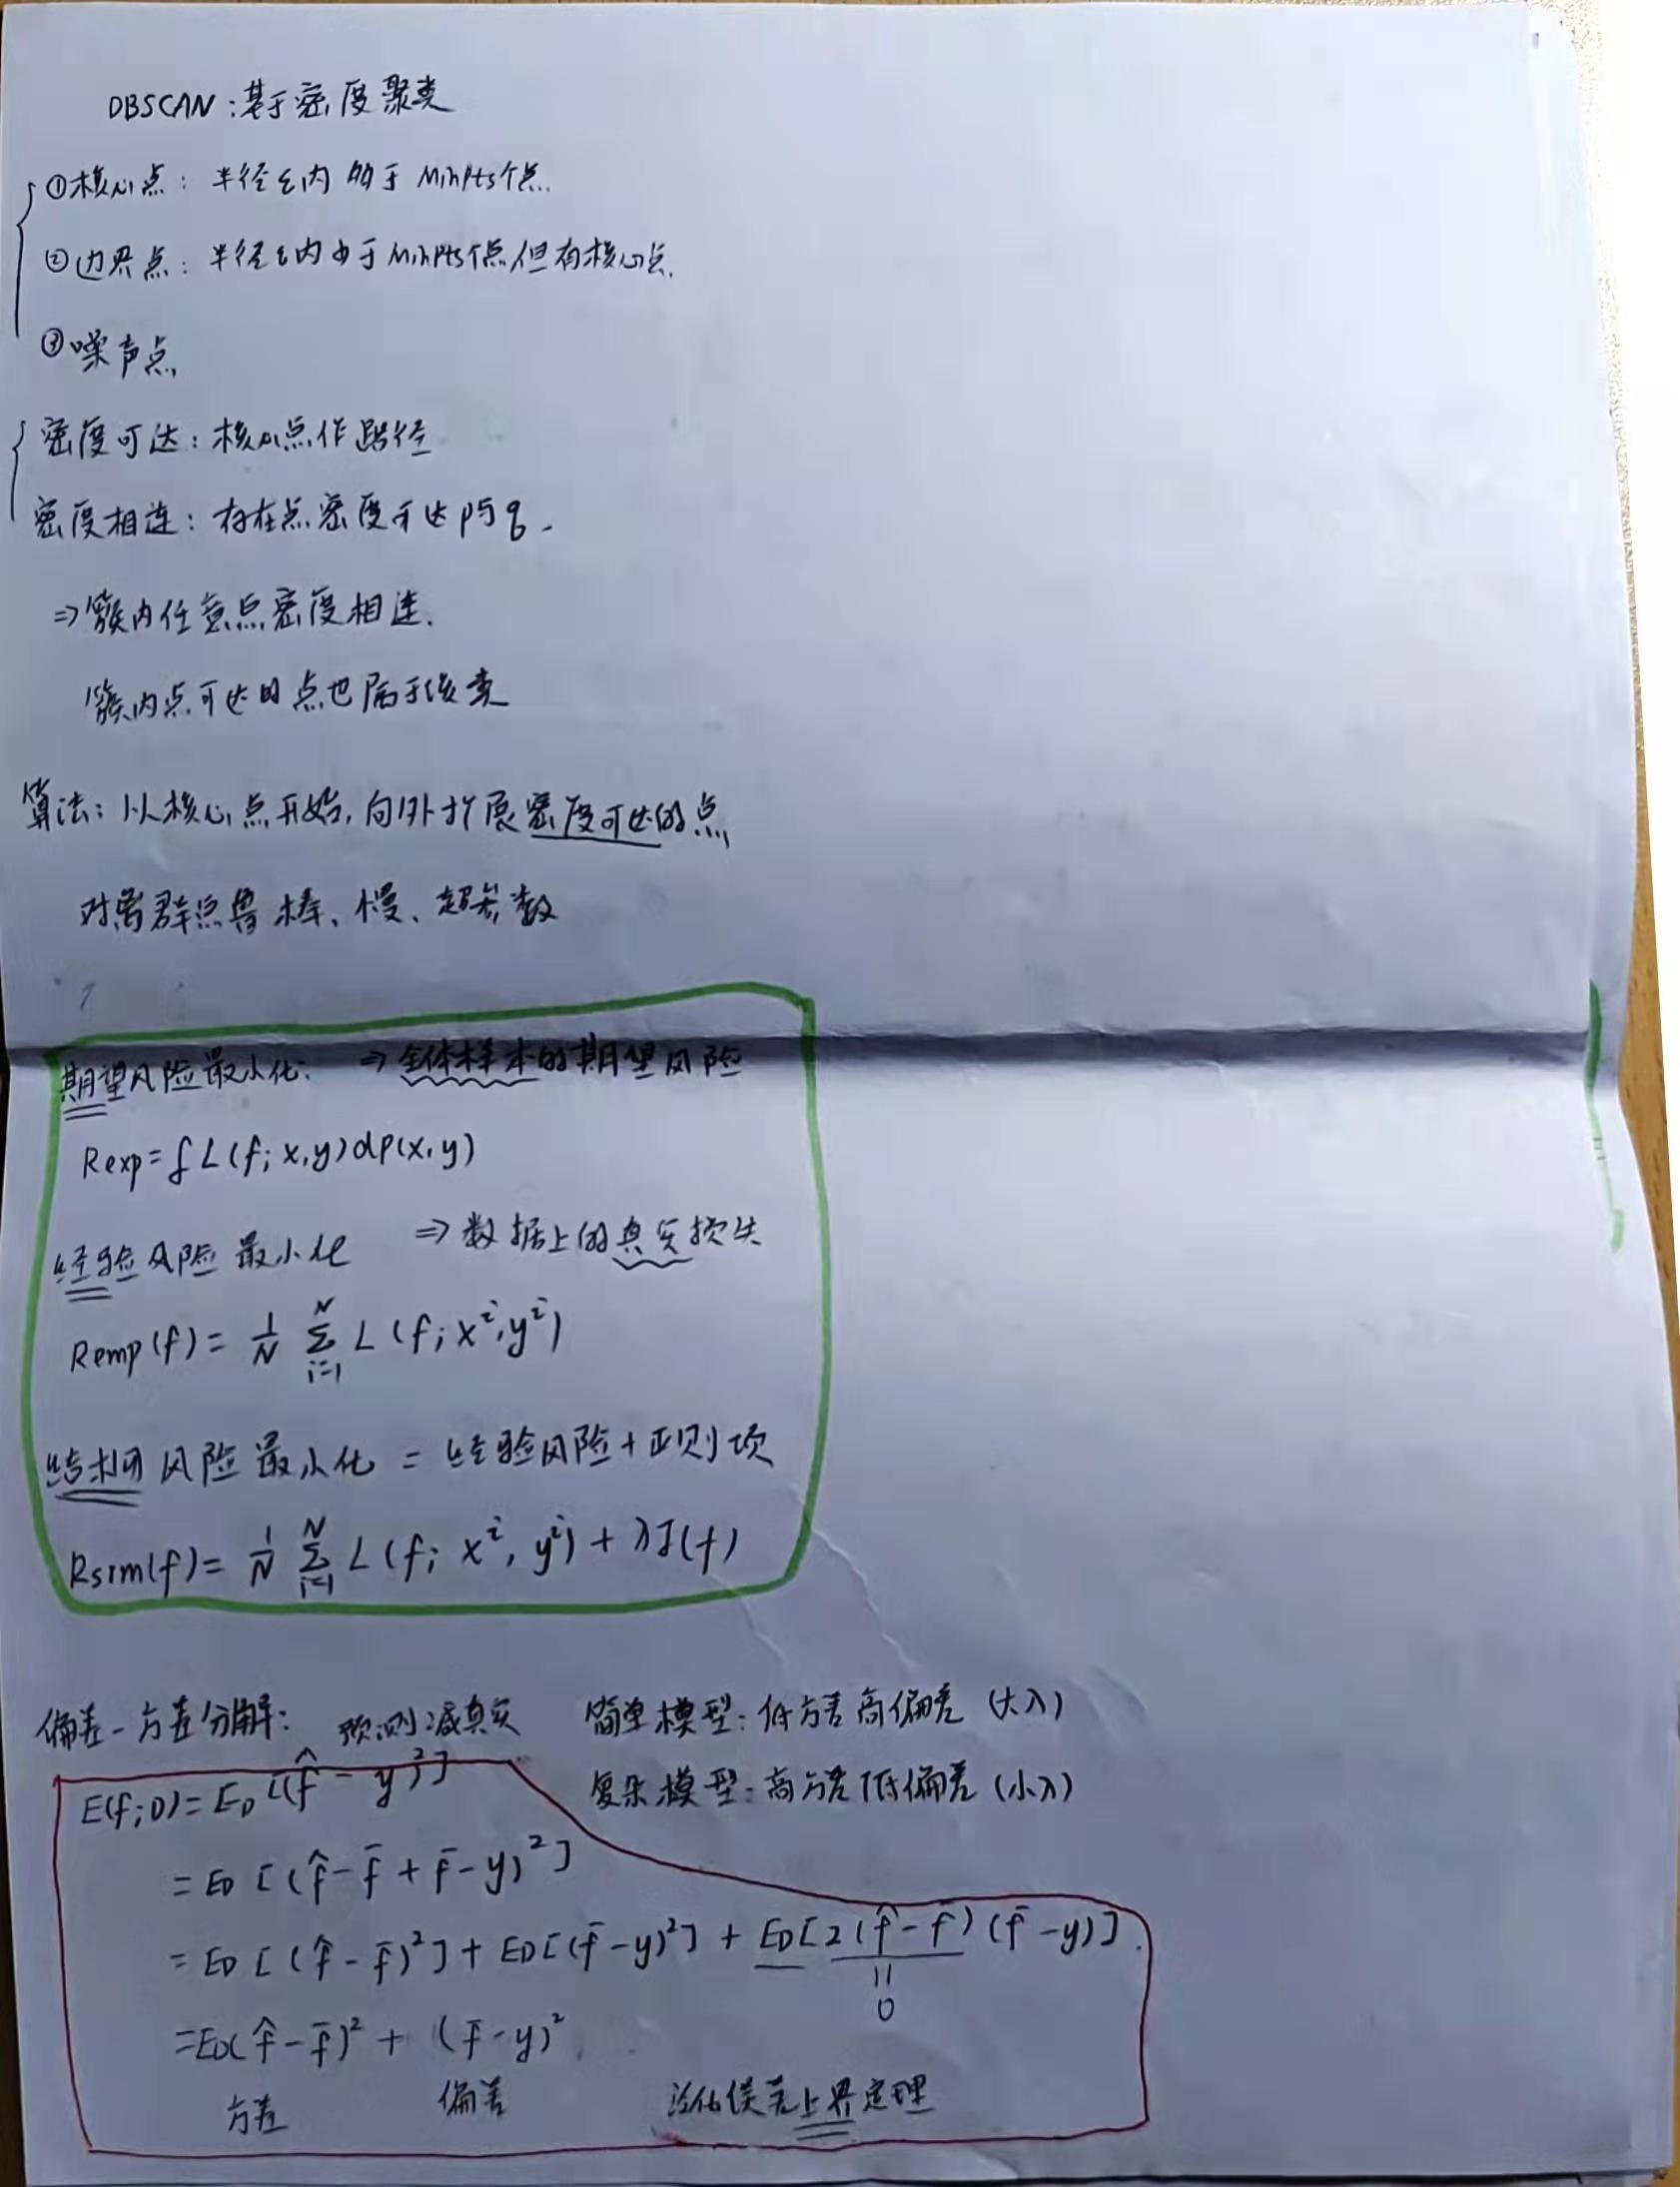 DBSCAN:基于密度聚类
①核心点: 半径ε内 多于 MinPts个点.
②边界点: 半径ε内少于MinPts个点但有核心点.
③噪声点
密度可达: 核心点作路径
密度相连: 存在点密度可达p与q.
⇒簇内任意点密度相连.
簇内点可达的点也属于该类
算法: 从核心点开始, 向外扩展密度可达的点
对离群点鲁棒、慢、超参数
期望风险最小化: ⇒ 全体样本的期望风险
Rexp=∫L(f; x,y)dp(x,y)
经验风险最小化 ⇒ 数据上的真实损失
Remp(f)= 1/N Σ_{i=1}^{N} L(f; x^i, y^i)
结构风险最小化 = 经验风险+正则项
Rsrm(f)= 1/N Σ_{i=1}^{N} L(f; x^i, y^i) + λJ(f)
偏差-方差分解: 预测减真实
简单模型: 低方差高偏差 (大λ)
复杂模型: 高方差低偏差 (小λ)
E(f;D)= E_D[(f̂ - y)²]
= E_D[(f̂ - f̄ + f̄ - y)²]
= E_D[(f̂ - f̄)²] + E_D[(f̄ - y)²] + E_D[2(f̂ - f̄)(f̄ - y)].
=
0
=E_D(f̂ - f̄)² + (f̄ - y)²
方差 偏差 泛化误差上界定理